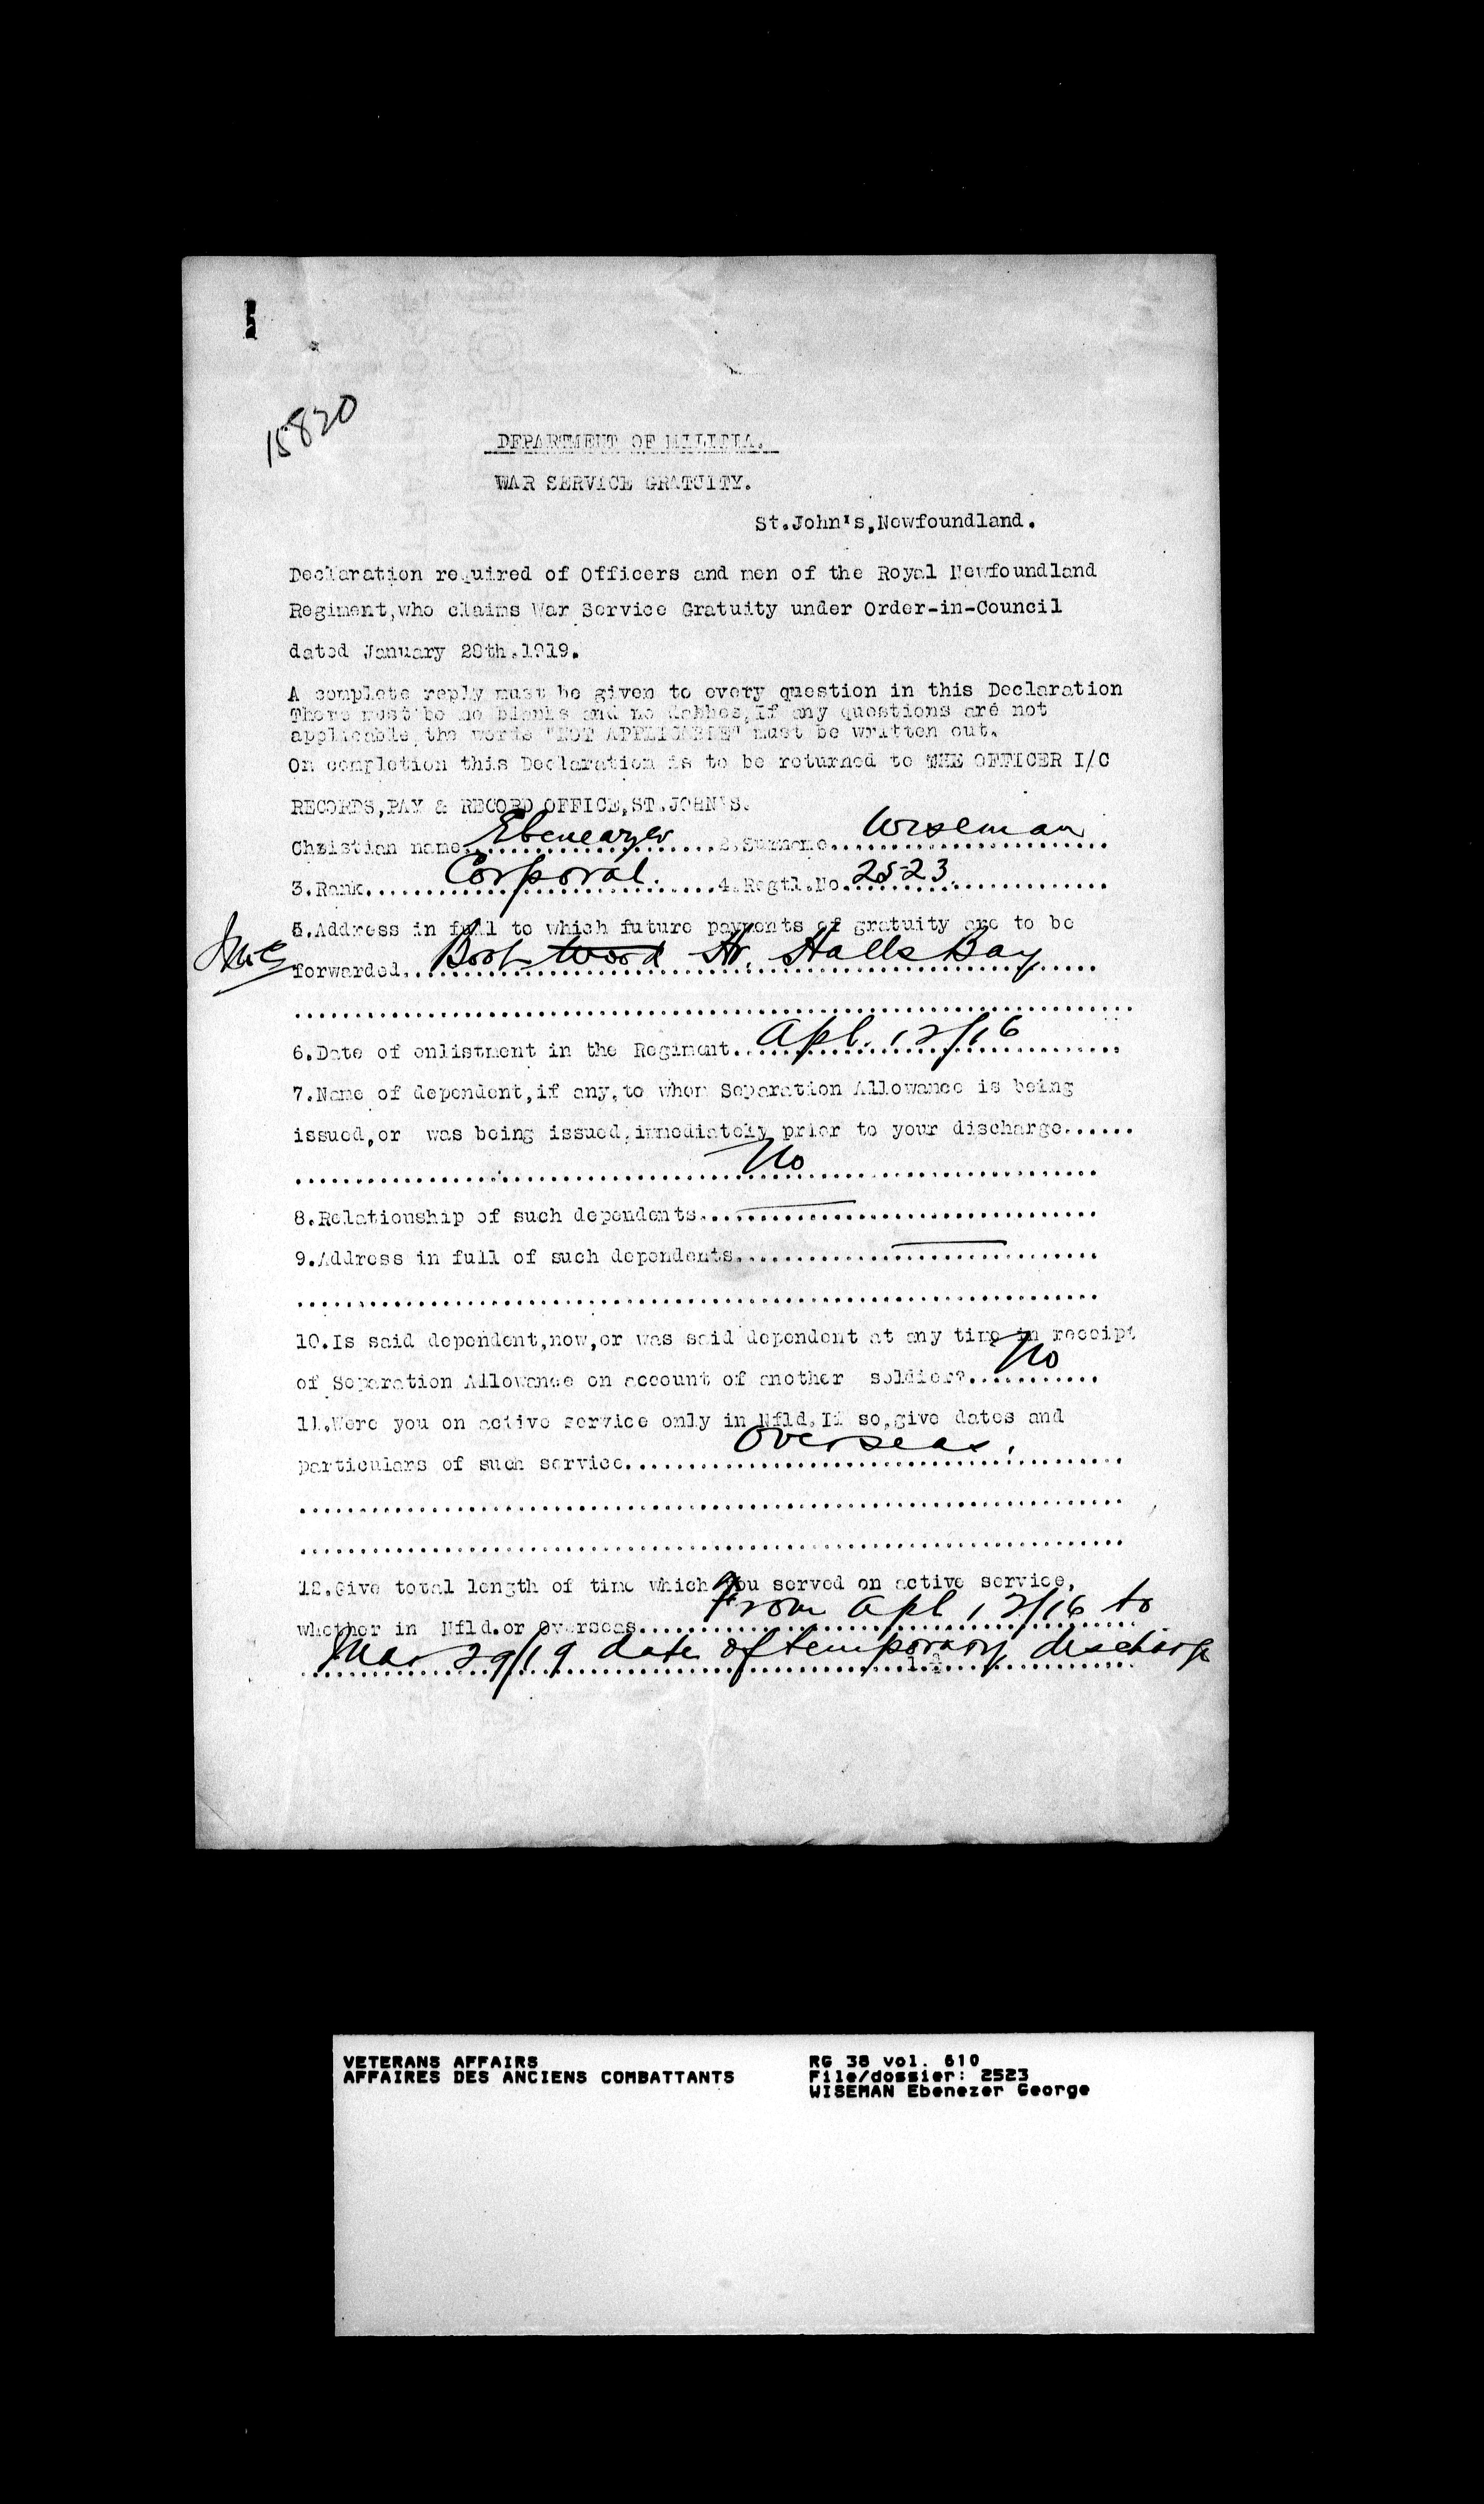 15820
DEPARTMENT OF MILITIA.
WAR SERVICE GRATUITY.
St.John's,Newfoundland.
Declaration required of Officers and men of the Royal Newfoundland
Regiment,who claims War Service Gratuity under Order-in-Council
dated January 28th.1919.
A complete reply must be given to every question in this Declaration
There must be no blanks and no dashes,If any questions are not
applicable,the words "NOT APPLICABLE" must be written out.
On completion this Declaration is to be returned to THE OFFICER I/C
RECORDS,PAY & RECORD OFFICE,ST.JOHN'S.
Christian name Ebenearzer 2.Surname Wiseman
3.Rank Corporal. 4.Regtl.No 2523.
5.Address in full to which future payments of gratuity are to be
forwarded. Boot Wood Hr. Halls Bay
6.Date of enlistment in the Regiment. Apl. 12/16
7.Name of dependent,if any,to whom Separation Allowance is being
issued,or was being issued,immediately prior to your discharge......
No
8.Relationship of such dependents.
9.Address in full of such dependents.
10.Is said dependent,now,or was said dependent at any time in receipt
of Separation Allowance on account of another soldier? No
11.Were you on active service only in Nfld.If so,give dates and
particulars of such service. Overseas.
12.Give total length of time which you served on active service,
whether in Nfld.or Overseas. From Apl 12/16 to
Mar 29/19 date of temporary discharge
VETERANS AFFAIRS
AFFAIRES DES ANCIENS COMBATTANTS
RG 38 vol. 610
File/dossier: 2523
WISEMAN Ebenezer George